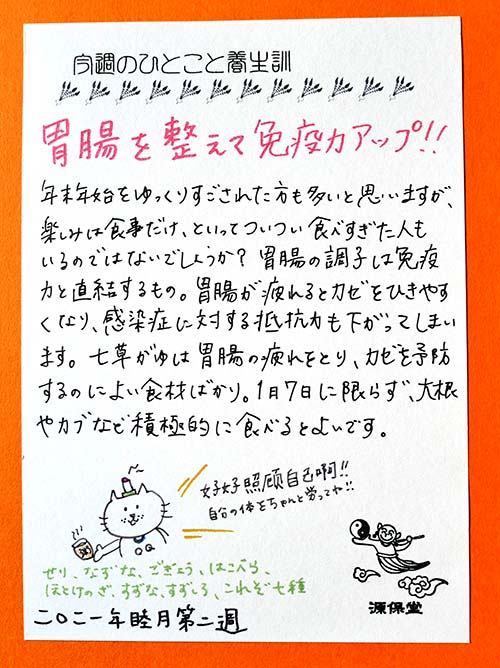 今週のひとこと養生訓
胃腸を整えて免疫力アップ!!
年末年始をゆっくりすごされた方も多いと思いますが、
楽しみは食事だけ、といってついつい食べすぎた人も
いるのではないでしょうか?胃腸の調子は免疫
力と直結するもの。胃腸が疲れるとカゼをひきやす
くなり、感染症に対する抵抗力も下がってしまい
ます。七草がゆは胃腸の疲れをとり、カゼを予防
するのによい食材ばかり。1月7日に限らず、大根
やカブなど積極的に食べるとよいです。
好好照顾自己啊!!
自分の体をちゃんと労ってね!!
せり、なずな、ごぎょう、はこべら、
ほとけのざ、すずな、すずしろ、これぞ七種
二〇二一年睦月第二週
源保堂